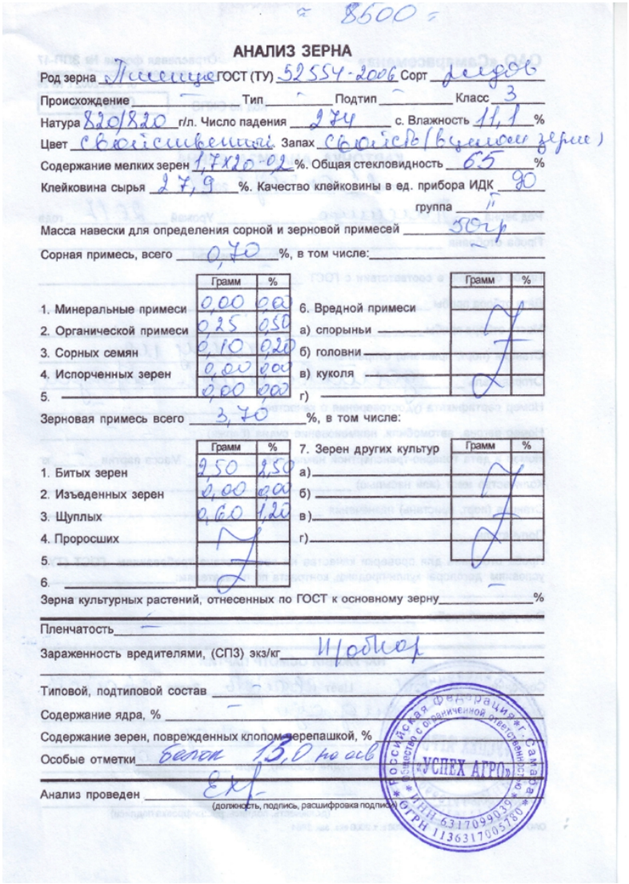 ≈ 8500 =
АНАЛИЗ ЗЕРНА
Род зерна Пшеница ГОСТ (ТУ) 52554-2006 Сорт рядов
Происхождение — Тип — Подтип — Класс 3
Натура 820/820 г/л. Число падения 274 с. Влажность 11,1 %
Цвет свойственный Запах свойств
Содержание мелких зерен 1,7х20-02 %. Общая стекловидность 65 %
Клейковина сырья 27,9 %. Качество клейковины в ед. прибора ИДК 90
группа II
Масса навески для определения сорной и зерновой примесей 50гр
Сорная примесь, всего 0,70 %, в том числе:
Грамм % Грамм %
1. Минеральные примеси 0,00 0,00 6. Вредной примеси
2. Органической примеси 0,25 0,50 а) спорыньи
3. Сорных семян 0,10 0,20 б) головни
4. Испорченных зерен 0,00 0,00 в) куколя
5. 0,00 0,00 г)
Зерновая примесь всего 3,70 %, в том числе:
Грамм % 7. Зерен других культур Грамм %
1. Битых зерен 2,50 2,50 а)
2. Изъеденных зерен 0,00 0,00 б)
3. Щуплых 0,60 1,20 в)
4. Проросших г)
5.
6.
Зерна культурных растений, отнесенных по ГОСТ к основному зерну %
Пленчатость —
Зараженность вредителями, (СПЗ) экз/кг
Типовой, подтиповой состав —
Содержание ядра, % —
Содержание зерен, поврежденных клопом-черепашкой, %
Особые отметки белок 13,0 на асв
Анализ проведен
(должность, подпись, расшифровка подписи)
Российская Федерация * г. Самара
Общество с ограниченной ответственностью
«УСПЕХ АГРО»
ИНН 6317099039
ОГРН 1136317005780